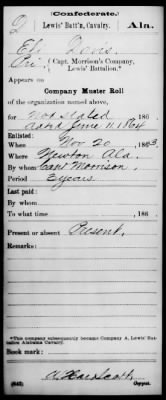 (Confederate.)
Lewis' Batt'n, Cavalry. Ala.
Eli
Pri. (Capt. Morrison's Company,
Lewis' Battalion.*
Appears on
Company Muster Roll
of the organization named above,
for Not stated 186
dated June 11, 1864
Enlisted:
When Nov 20, 1863
Where Newton Ala.
By whom Capt Morrison
Period 3 years
Last paid:
By whom
To what time , 186
Present or absent Present.
Remarks:
*This company subsequently became Company A, Lewis' Battalion Alabama Cavalry.
Book mark:
(642) Copyist.